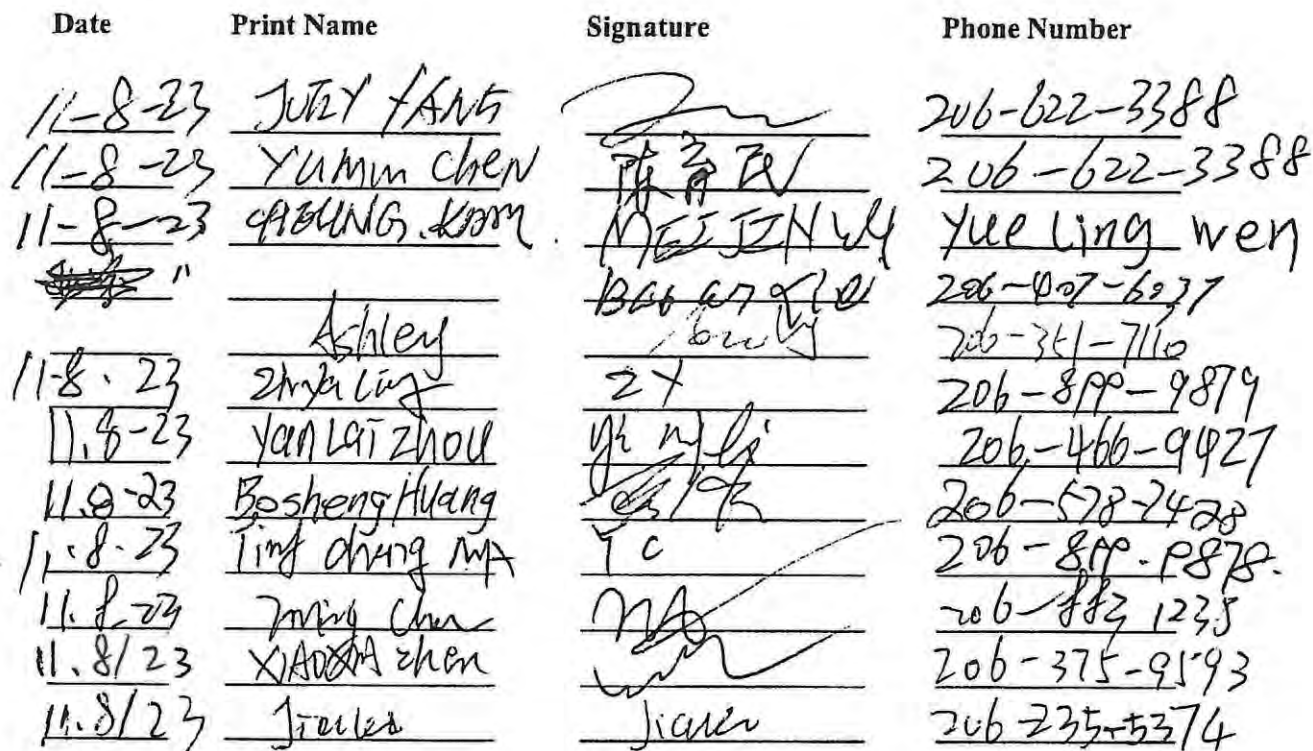 Date Print Name Signature Phone Number
11-8-23 JUDY YANG 206-622-3388
11-8-23 Yumin Chen 陳育民 206-622-3388
11-8-23 CHEUNG.KAM MEI JEN WU Yue Ling wen
" 206-407-6037
Ashley 206-351-7110
11-8.23 Zhiya Ling ZY 206-899-9879
11.8-23 Yan Lai Zhou 206-466-9427
11.8-23 Bosheng Huang 206-578-2428
11.8.23 Ting chang MA TC 206-899.9878.
11.8.23 Ming Chen 206-883 1235
11.8/23 XIAOXIA zhen 206-375-9593
11.8/23 206-235-5374